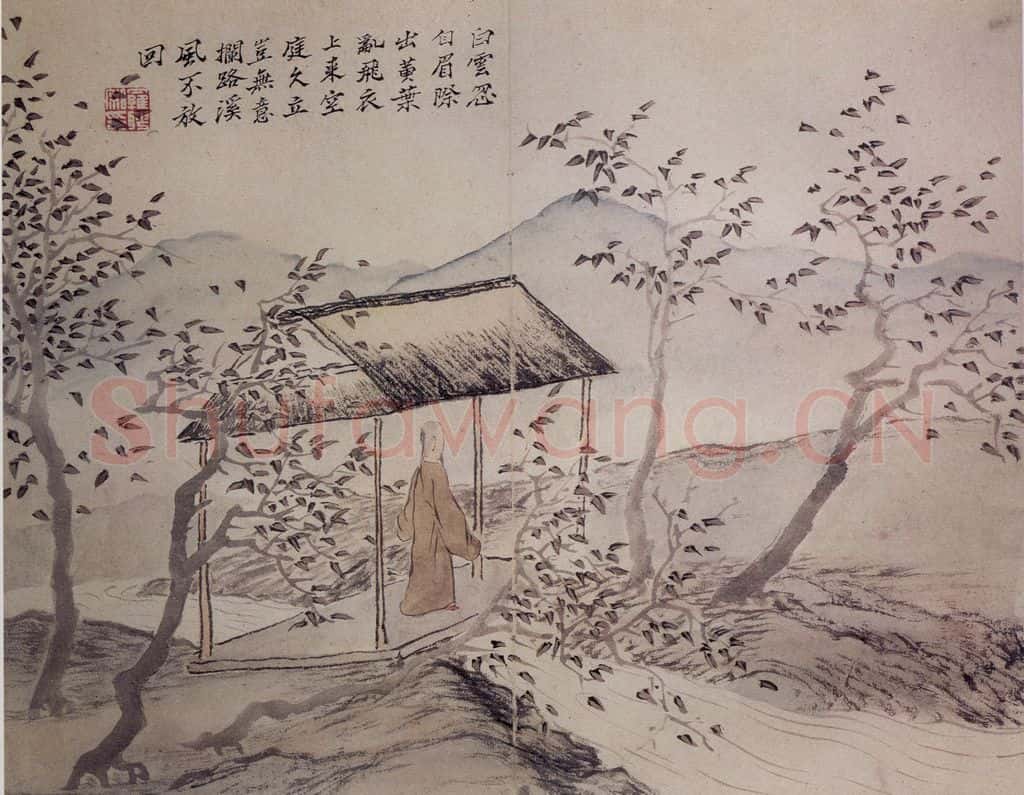 白雲忽
自眉際
出黃葉
亂飛衣
上来空
庭久立
豈無意
攔路溪
風不放
回
Shufawang.CN